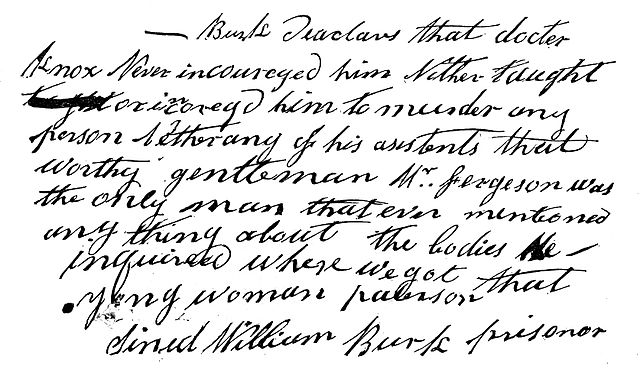 — Burk deaclars that docter
Knox Never incoureged him Nither taught
or incoregd him to murder any
person Netherany of his asistents that
worthy gentleman Mr. Fergeson was
the only man that ever mentioned
any thing about the bodies He
inquired where we got that
yong woman paterson
Sined William Burk prisonor